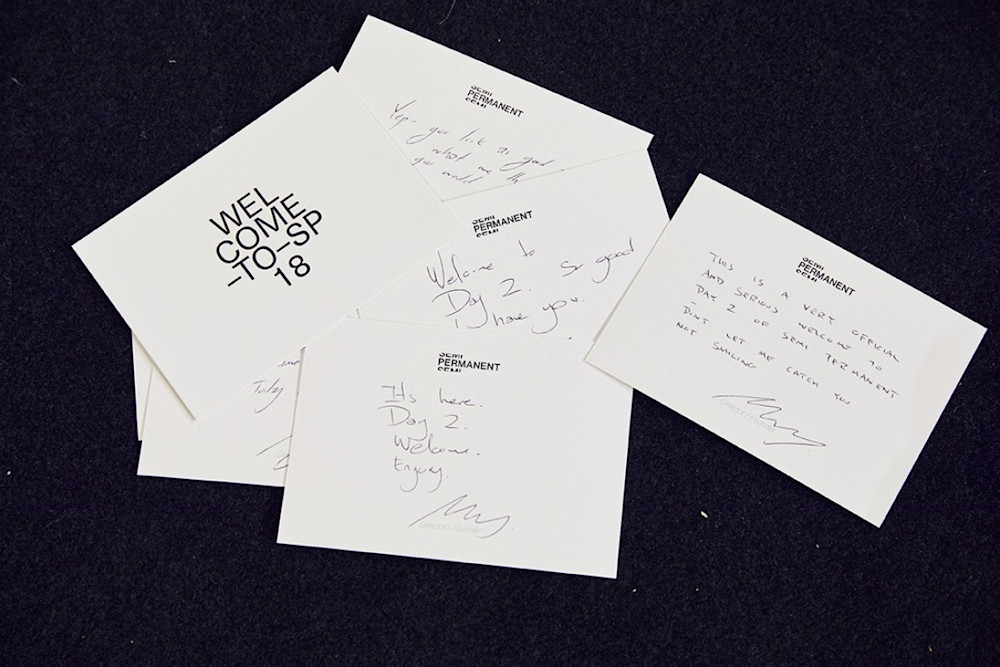 SEMI
PERMANENT
SEMI
Yep- you look as good
what me th
you would
WEL
COME
-TO-SP
18
SEMI
PERMANENT
SEMI
Welcome to so good
Day 2.
I have you.
SEMI
PERMANENT
SEMI
THIS IS A VERY OFFICIAL
AND SERIOUS WELCOME TO
DAY 2 OF SEMI PERMANENT
-
DON'T LET ME CATCH YOU
NOT SMILING
Director / Founder
SEMI
PERMANENT
SEMI
It's here.
Day 2.
Welcome.
Enjoy.
Director / Founder